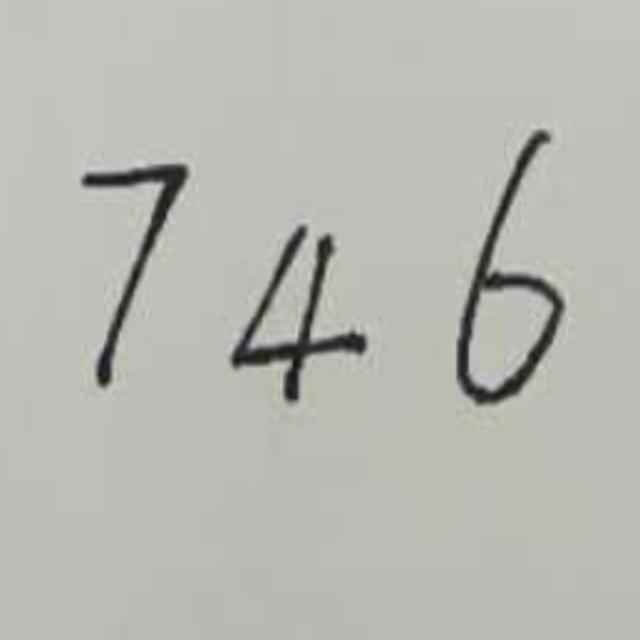 7 4 6